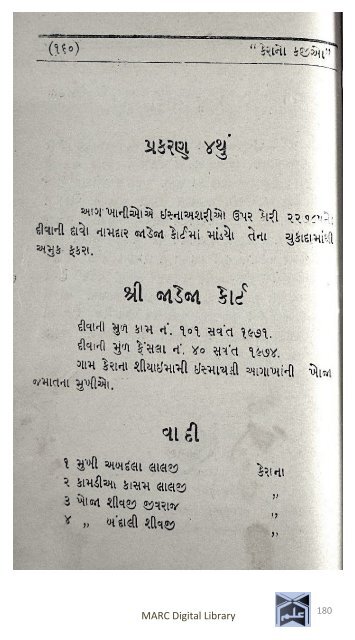 (૧૬૦)
“ કેરાનો કજીઓ”
પ્રકરણ ૪થું
આગાખાનીઓએ ઇસ્નાઅશરીઓ ઉપર
દીવાની દાવો નામદાર જાડેજા કોર્ટમાં માંડયો તેના ચુકાદામાંથી
અમુક ફકરા.
શ્રી જાડેજા કોર્ટ
દીવાની મુળ કામ નં. ૧૦૧ સવંત ૧૯૭૧.
દીવાની મુળ ફેંસલા નં. ૪૦ સવંત ૧૯૭૪.
ગામ કેરાના શીયાઇમામી ઇસ્માયલી આગાખાંની ખોજા
જમાતના મુખીઓ.
વાદી
૧ મુખી અબદલા લાલજી કેરાના
૨ કામડીઆ કાસમ લાલજી ,,
૩ ખોજા શીવજી જીવરાજ ,,
૪ ,, બંદાલી શીવજી ,,
MARC Digital Library
علم
180